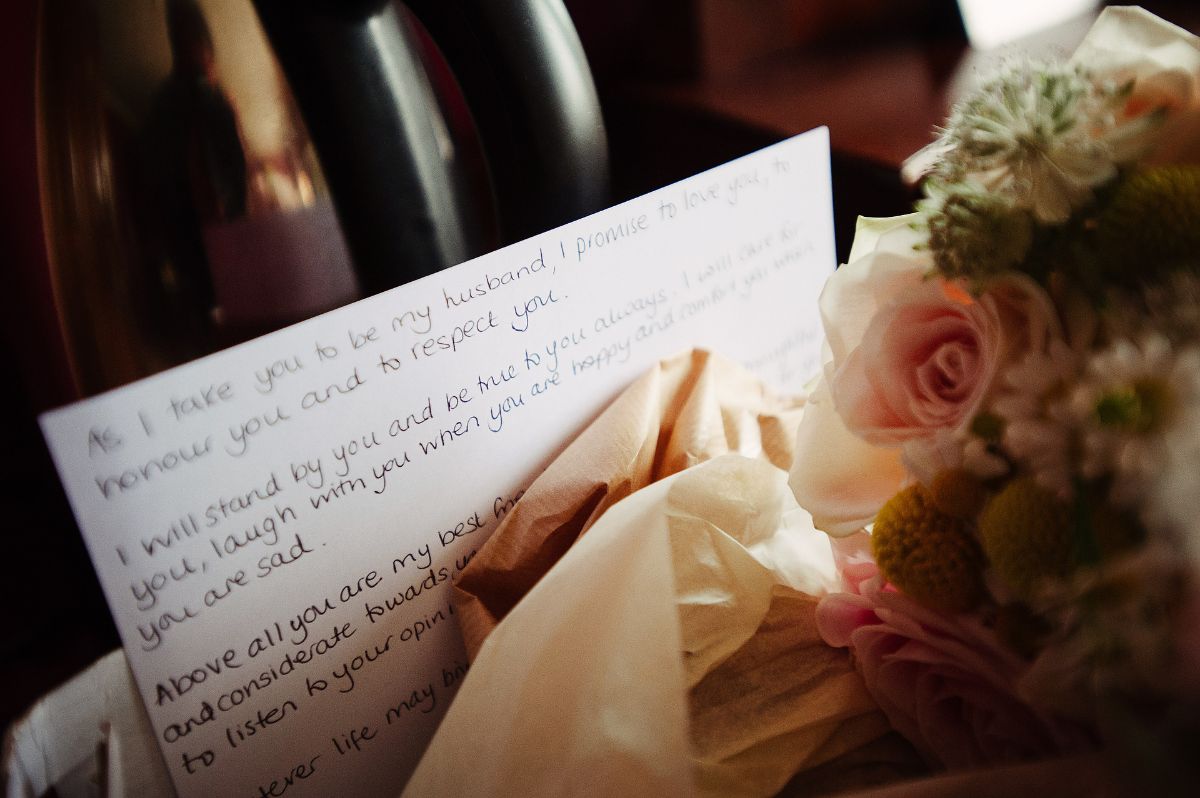 As I take you to be my husband, I promise to love you, to
honour you and to respect you.
I will stand by you and be true to you always. I will care for
you, laugh with you when you are happy and comfort you when
you are sad.
Above all you are my best
and considerate towards
to listen to your
life may